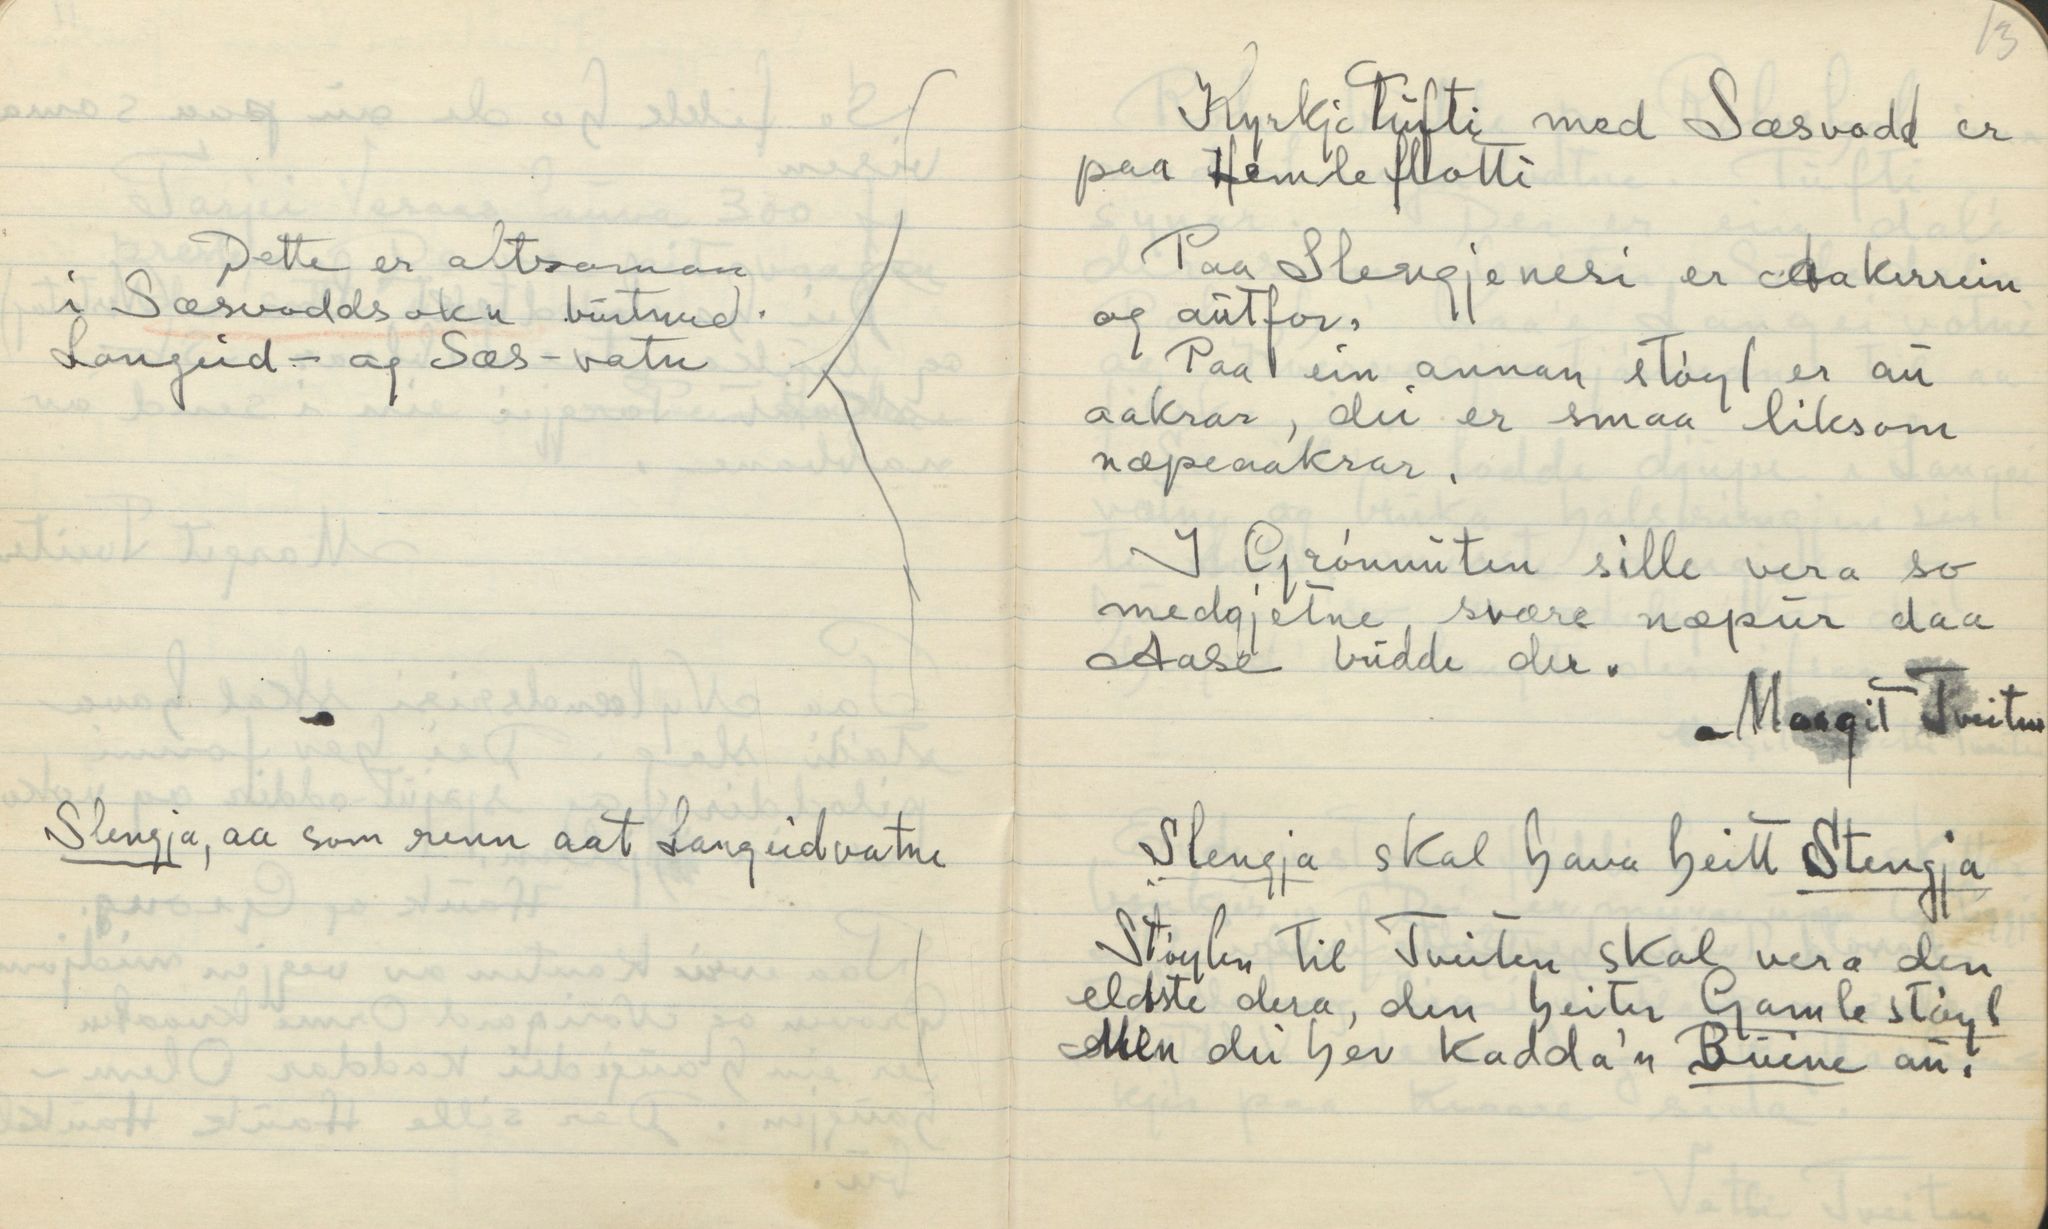 Dette er altsaman
i Sæsvoddsokn búitnud.
Langeid- og Sæs-vatn
Slengja, aa som renn aat Langeidvatne
13
KyrkjeTufti med Sæsvodd er
paa Hemleflotti
Paa Slengjenesi er Aakerrein
og aütfor.
Paa ein annan støyl er aü
aakrar, dei er smaa liksom
næpeaakrar.
I Grónnüten sille vera so
medgjetne svære næpür daa
Aase büdde der.
Margit Tveiten
Slengja skal hava heitt Stengja
Støylen til Tveiten skal vera den
eldste dera, den heiter Gamlestøyl
Men dei hev kadda'n Büine aü.